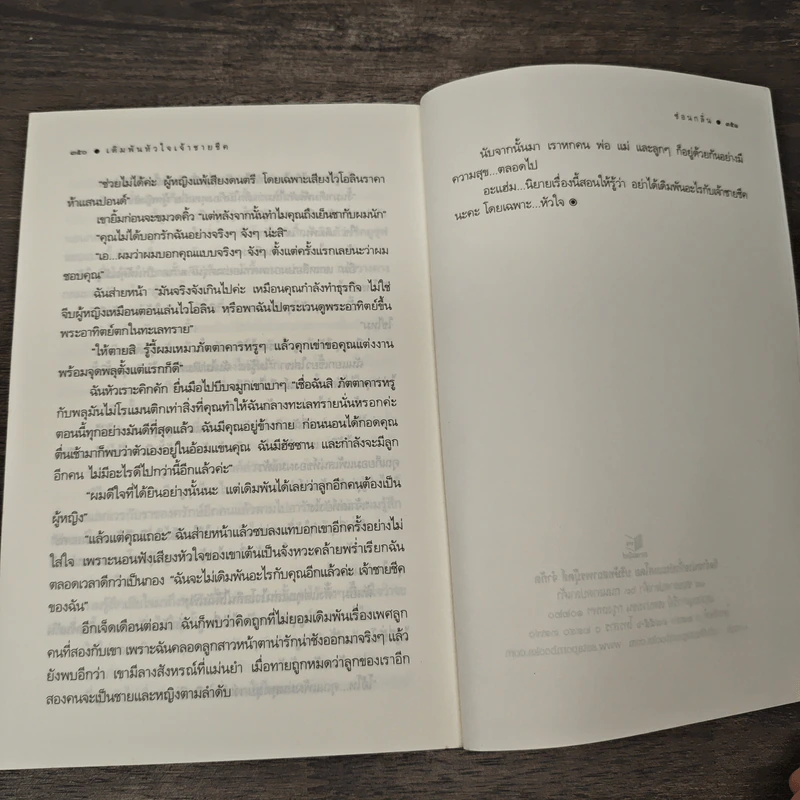 ๓๕๐ ● เดิมพันหัวใจเจ้าชายชีค
"ช่วยไม่ได้ค่ะ ผู้หญิงแพ้เสียงดนตรี โดยเฉพาะเสียงไวโอลินราคา
ห้าแสนปอนด์"
เขายิ้มก่อนจะขมวดคิ้ว "แต่หลังจากนั้นทำไมคุณถึงเย็นชากับผมนัก"
"คุณไม่ได้บอกรักฉันอย่างจริงๆ จังๆ น่ะสิ"
"เอ...ผมว่าผมบอกคุณแบบจริงๆ จังๆ ตั้งแต่ครั้งแรกเลยนะว่าผม
ชอบคุณ"
ฉันส่ายหน้า "มันจริงจังเกินไปค่ะ เหมือนคุณกำลังทำธุรกิจ ไม่ใช่
จีบผู้หญิงเหมือนตอนเล่นไวโอลิน หรือพาฉันไปตระเวนดูพระอาทิตย์ขึ้น
พระอาทิตย์ตกในทะเลทราย"
"ให้ตายสิ รู้งี้ผมเหมาภัตตาคารหรูๆ แล้วคุกเข่าขอคุณแต่งงาน
พร้อมจุดพลุตั้งแต่แรกก็ดี"
ฉันหัวเราะคิกคัก ยื่นมือไปบีบจมูกเขาเบาๆ "เชื่อฉันสิ ภัตตาคารหรู
กับพลุมันไม่โรแมนติกเท่าสิ่งที่คุณทำให้ฉันกลางทะเลทรายนั่นหรอกค่ะ
ตอนนี้ทุกอย่างมันดีที่สุดแล้ว ฉันมีคุณอยู่ข้างกาย ก่อนนอนได้กอดคุณ
ตื่นเช้ามาก็พบว่าตัวเองอยู่ในอ้อมแขนคุณ ฉันมีฮัซซาน และกำลังจะมีลูก
อีกคน ไม่มีอะไรดีไปกว่านี้อีกแล้วค่ะ"
"ผมดีใจที่ได้ยินอย่างนั้นนะ แต่เดิมพันได้เลยว่าลูกอีกคนต้องเป็น
ผู้หญิง"
"แล้วแต่คุณเถอะ" ฉันส่ายหน้าแล้วซบลงแทบอกเขาอีกครั้งอย่างไม่
ใส่ใจ เพราะนอนฟังเสียงหัวใจของเขาเต้นเป็นจังหวะคล้ายพร่ำเรียกฉัน
ตลอดเวลาดีกว่าเป็นกอง "ฉันจะไม่เดิมพันอะไรกับคุณอีกแล้วค่ะ เจ้าชายชีค
ของฉัน"
อีกเจ็ดเดือนต่อมา ฉันก็พบว่าคิดถูกที่ไม่ยอมเดิมพันเรื่องเพศลูก
คนที่สองกับเขา เพราะฉันคลอดลูกสาวหน้าตาน่ารักน่าชังออกมาจริงๆ แล้ว
ยังพบอีกว่า เขามีลางสังหรณ์ที่แม่นยำ เมื่อทายถูกหมดว่าลูกของเราอีก
สองคนจะเป็นชายและหญิงตามลำดับ
ซ่อนกลิ่น ● ๓๕๑
นับจากนั้นมา เราหกคน พ่อ แม่ และลูกๆ ก็อยู่ด้วยกันอย่างมี
ความสุข...ตลอดไป
อะแฮ่ม...นิยายเรื่องนี้สอนให้รู้ว่า อย่าได้เดิมพันอะไรกับเจ้าชายชีค
นะคะ โดยเฉพาะ...หัวใจ